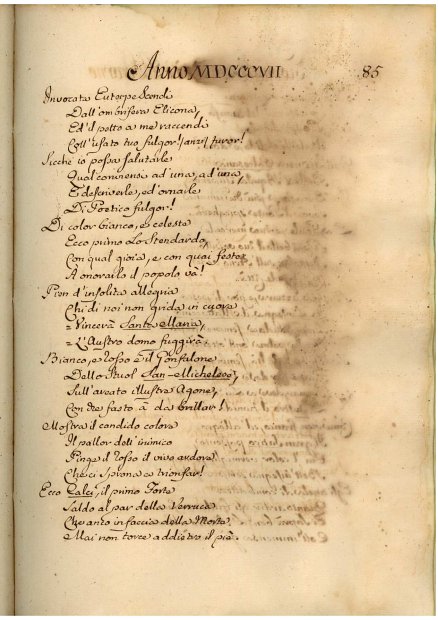 Anno MDCCCVII
85
Invocata Euterpe Scendi
Dall'ombrifera Elicona,
Ed il petto a me raccendi
Coll'usato tuo fulgor! (anzi) furor!
Sicchè io possa salutarle
Qual conviensi ad'una, ad'una,
E descriverle, ed ornarle
Di Poetico fulgor!
Di color bianco, e celeste
Ecco primo Lo Stendardo,
Con qual gioia, e con quai feste
A onorarlo il popolo va!
Pien d'insolita allegria
Chi di noi non grida in cuore
= Vincerà Santa Maria,
= L'Austro domo fuggirà.
Bianco, e rosso è il Gonfalone
Dello Stuol San-Micheleso,
Sull'aurato illustre Agone,
Con tre fasto à da brillar!
Mostra il candido colore
Il pallor dell'inimico
Pinge il rosso il vivo ardore
Che ci sprona a trionfar!
Ecco Calci, il primo Forte
Saldo al par della Verruca
Che anco in faccia della Morte
Mai non torce addietro il piè.